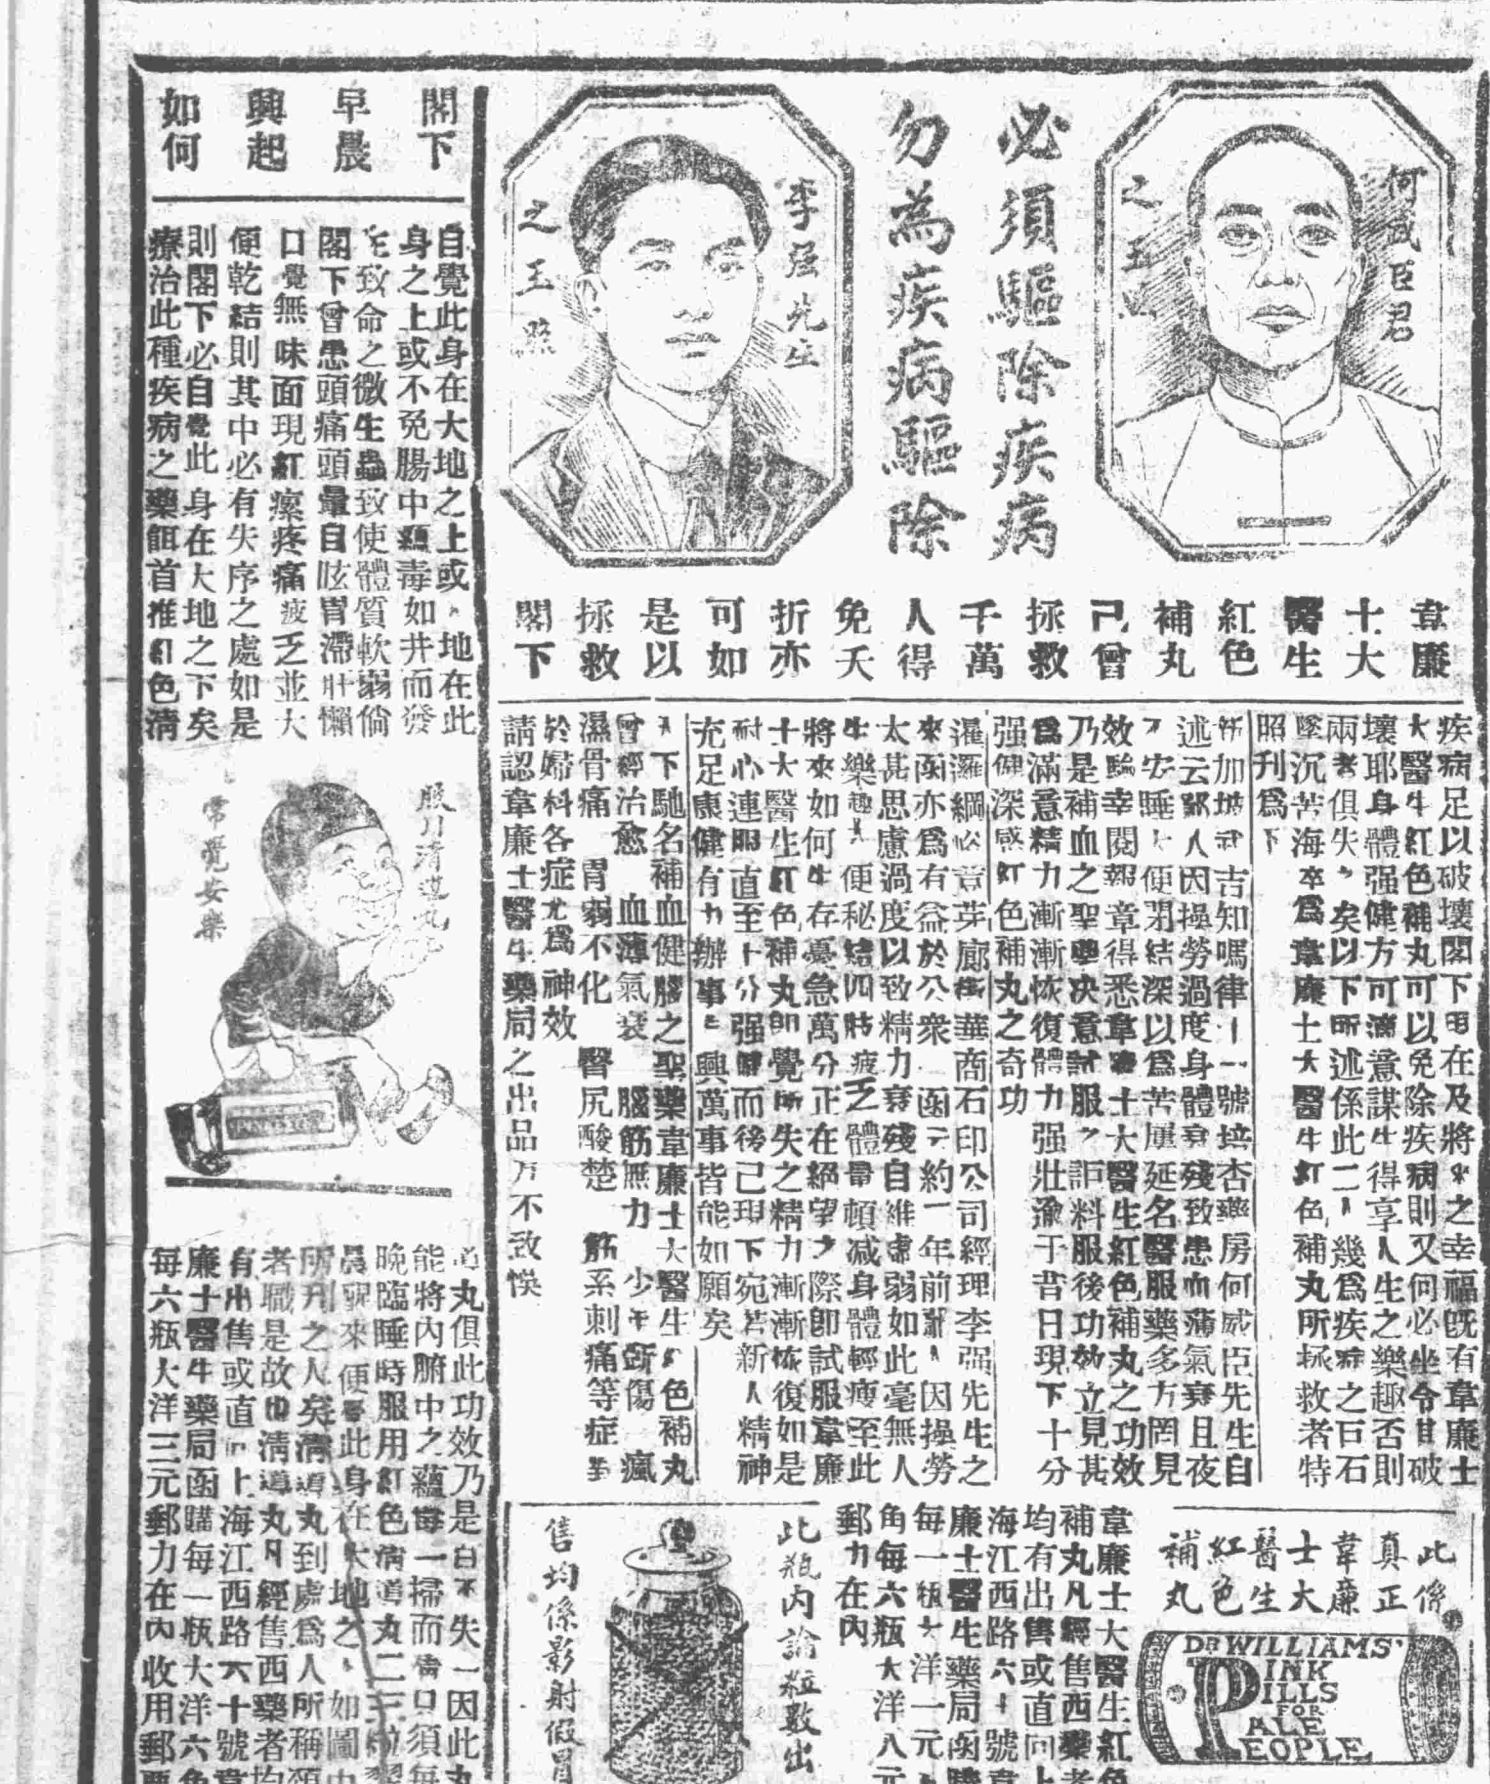 何威臣君
之玉
必須驅除疾病
勿為疾病驅除
李强先生
之玉照
韋廉
十大
醫生
紅色
補丸
已曾
拯救
千萬
人得
免夭
折亦
可如
是以
拯救
閣下
疾病足以破壞閣下現在及將來之幸福旣有韋廉士
大醫生紅色補丸可以免除疾病則又何必坐令其破
壞耶身體强健方可滿意謀生得享人生之樂趣否則
兩者俱失矣以下所述係此二人幾爲疾症之巨石
墜沉苦海卒爲韋廉士大醫生紅色補丸所拯救者特
照刊爲下
新加坡吉知嗎律十一號培杏藥房何威臣先生自
述云鄙人因操勞過度身體衰殘致患血薄氣衰且夜
不安睡大便閉結深以爲苦屢延名醫服藥多方罔見
效騐幸閱報章得悉韋廉士大醫生紅色補丸之功效
乃是補血之聖藥决意試服之詎料服後功效立見甚
爲滿意精力漸漸恢復體力强壯逾于昔日現下十分
强健深感紅色補丸之奇功
暹邏綱章芽廊街華商石印公司經理李强先生之
來函亦爲有益於公衆函云約一年前鄙人因操勞
太甚思慮過度以致精力衰殘自維虛弱如此毫無人
生樂趣大便秘結四肢疲乏體量頓减身體輕瘦至此
將來如何生存憂急萬分正在絕望之際即試服韋廉
士大醫生紅色補丸即覺所失之精力漸漸恢復如是
耐心連服直至十分强健而後己現下宛若新人精神
充足康健有力辦事高興萬事皆能如願矣
天下馳名補血健腦之聖藥韋廉士大醫生紅色補丸
曾經治愈 血薄氣衰 腦筋無力 少年斵傷 瘋
濕骨痛 胃弱不化 醫尻酸楚 筋系刺痛等症對
於婦科各症尤爲神效
請認韋廉士醫生藥局之出品方不致悞
此係
真正
韋廉
士大
醫生
紅色
補丸
DR WILLIAMS'
PINK
PILLS
FOR
PALE
PEOPLE
韋廉士大醫生紅色
補丸凡經售西藥者
均有出售或直向上
海江西路六十號韋
廉士醫生藥局函購
每一瓶大洋一元
角每六瓶大洋八元
郵力在內
此瓶內論粒數出
售均係影射假冒
閣下
早晨
興起
如何
自覺此身在大地之上或地在此
身之上或不免腸中蘊毒如井而發
生致命之微生蟲致使體質軟弱倘
閣下曾患頭痛頭暈目眩胃滯肝懶
口覺無味面現紅瘰疼痛疲乏並大
便乾結則其中必有失序之處如是
則閣下必自覺此身在大地之下矣
療治此種疾病之藥餌首推紅色清
服用清導丸
常覺安樂
導丸俱此功效乃是百不失一因此丸
能將內腑中之蘊毒一掃而偹口須每
晚臨睡時服用紅色清導丸二三粒翌
晨醒來便覺此身在大地之上如圖中
所列之人矣清導丸到處爲人所稱頌
者職是故也清導丸凡經售西藥者均
有出售或直向上海江西路六十號韋
廉士醫生藥局函購每一瓶大洋六角
每六瓶大洋三元郵力在內收用郵票